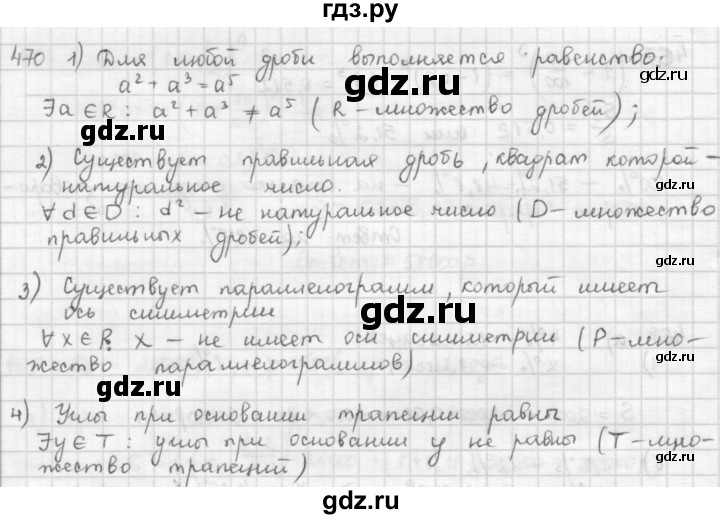 гдз.ру
470 1) Для любой дроби выполняется равенство:
a² + a³ = a⁵
∃a ∈ R : a² + a³ ≠ a⁵ ( R - множество дробей) ;
2) Существует правильная дробь , квадрат которой -
натуральное число.
∀ d ∈ D : d² - не натуральное число (D - множество
правильных дробей);
gdz.ru
3) Существует параллелограмм , который имеет
ось симметрии
∀ x ∈ P: x - не имеет оси симметрии (P - мно-
жество параллелограммов)
gdz.ru
4) Углы при основании трапеции равны
∃y ∈ T : углы при основании y не равны (T - мно-
жество трапеций)
gdz.ru
gdz.ru